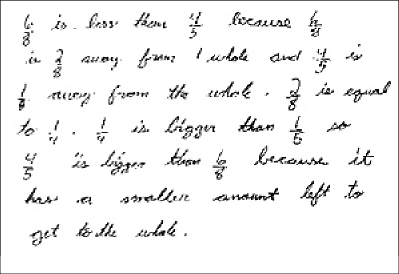 6/8 is less than 4/5 because 6/8
is 2/8 away from 1 whole and 4/5 is
1/5 away from the whole. 2/8 is equal
to 1/4. 1/4 is bigger than 1/5 so
4/5 is bigger than 6/8 because it
has a smaller amount left to
get to the whole.